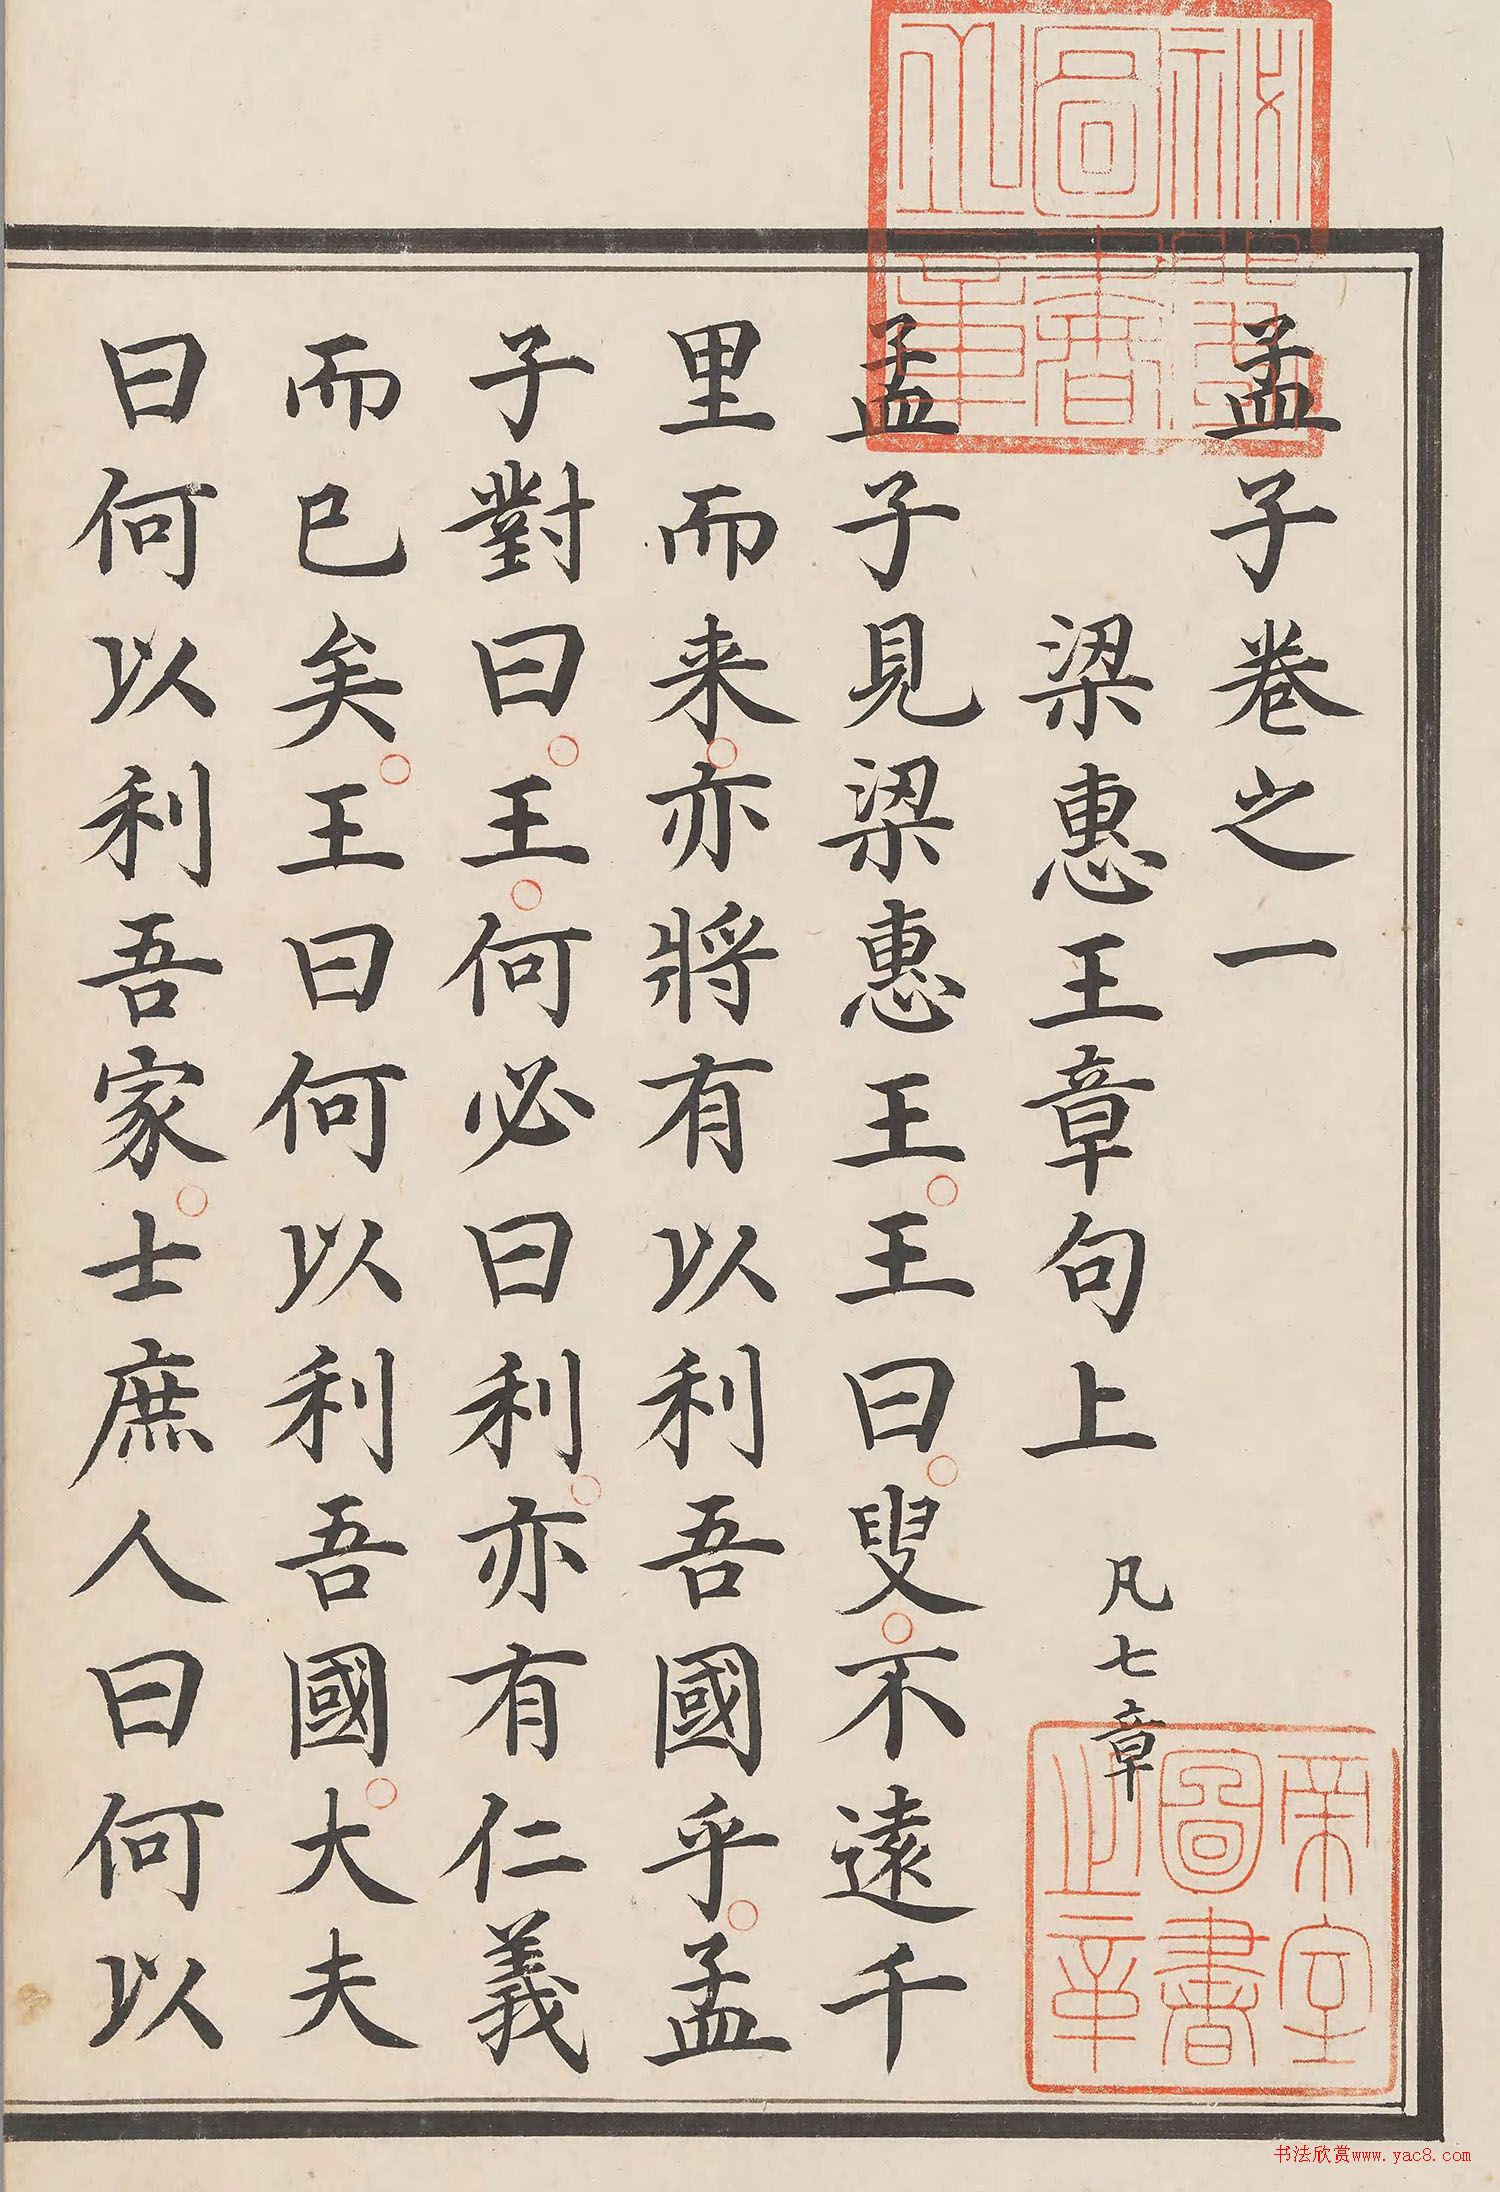 孟子卷之一
梁惠王章句上 凡七章
孟子見梁惠王○王曰○叟○不遠千
里而来○亦將有以利吾國乎○孟
子對曰○王○何必曰利○亦有仁義
而已矣○王曰何以利吾國○大夫
曰何以利吾家○士庶人曰何以
秘閣圖書之章
帝室圖書之章
书法欣赏www.yac8.com